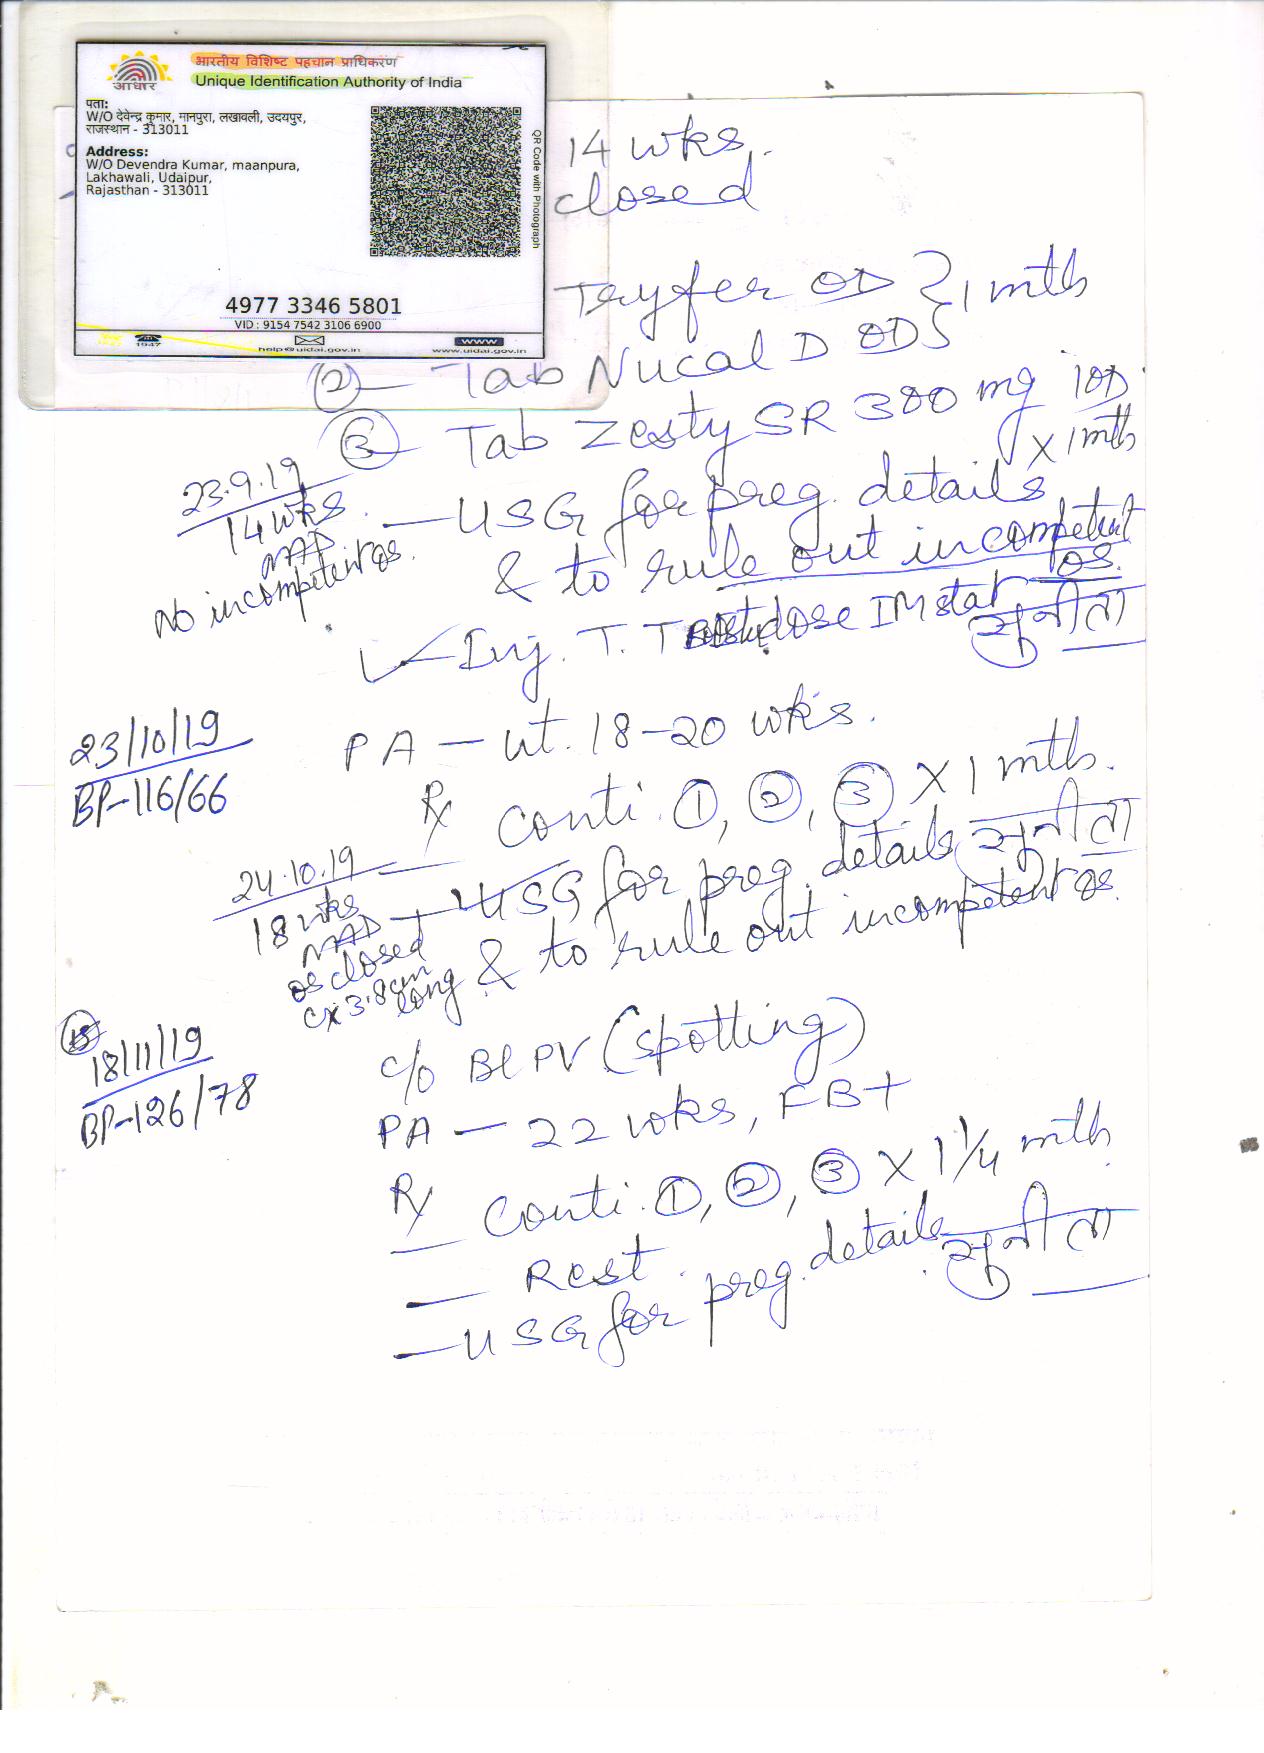 भारतीय विशिष्ट पहचान प्राधिकरण
Unique Identification Authority of India
आधार
पता:
W/O देवेन्द्र कुमार, मानपुरा, लखावली, उदयपुर,
राजस्थान - 313011
Address:
W/O Devendra Kumar, maanpura,
Lakhawali, Udaipur,
Rajasthan - 313011
QR Code with Photograph
4977 3346 5801
VID : 9154 7542 3106 6900
1947
help@uidai.gov.in
www
www.uidai.gov.in
14 wks.
closed
Tryfer OD } 1 mth
② — Tab Nucal D OD
③ — Tab Zesty SR 300 mg 1OD
x 1 mth
23.9.19
14 wks.
NAD
No incompetent os.
— USG for preg. details
& to rule out incompetent
os.
✓ Inj. T.T. dose IM stat
सुनीता
23/10/19
BP-116/66
PA — ut. 18-20 wks.
Rx Conti. ①, ②, ③ X 1 mth.
24.10.19
18 wks
NAD
os closed
cx 3.8cm
long
— USG for preg. details
सुनीता
& to rule out incompetent os.
18/11/19
BP-126/78
c/o Bl PV (spotting)
PA — 22 wks, FB+
Rx Conti. ①, ②, ③ X 1 1/4 mth
— Rest.
— USG for preg. details
सुनीता